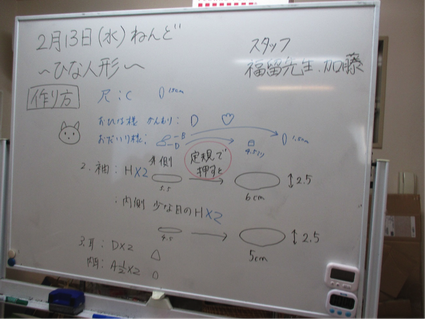 2月13日(水)ねんど
スタッフ
~ひな人形~
福留先生、加藤
作り方
尺:C
おひな様 かんむり: D
おだいり様: B
D
2. 袖: H×2 外側 定規で押すと
5.5
6cm
2.5
:内側 少な目のH×2
4.5
5cm
2.5
3. 耳: D×2
A½×2